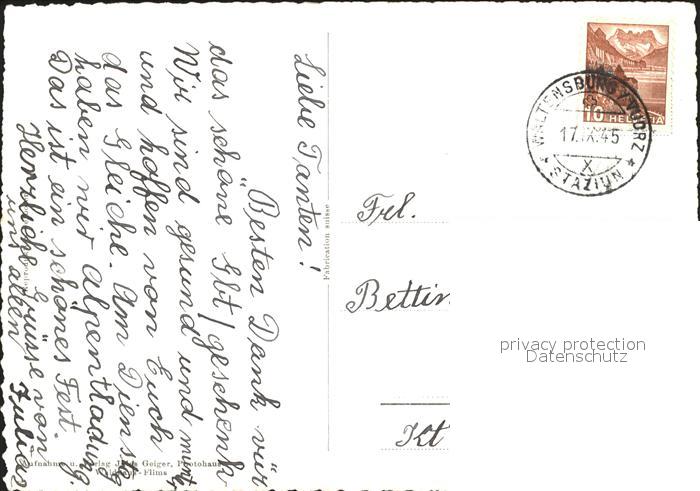 Liebe Tanten!
Besten Dank vür
das schöne Gbt/geschenk
Wir sind gesund und munter
und hoffen von Euch
das Gleiche. Am Dienstag
haben wir Alpentladung.
Das ist ein schönes Fest.
Herzliche Grüsse von
uns allen Julias
Fabrication suisse
Aufnahme u. Verlag Jules Geiger, Photohaus
Flims
HELVETIA
10
WALTENSBURG/VUORZ
17.IX.45
X
* STAZIUN *
Frl.
Bettin
Kt
privacy protection
Datenschutz